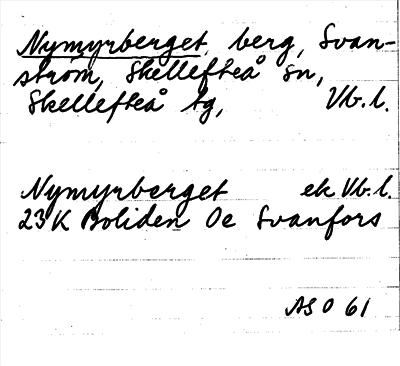 Nymyrberget, berg, Svan-
ström, Skellefteå sn,
Skellefteå tg, Vb. l.
Nymyrberget ek Vb. l.
23 K Boliden Oe Svanfors
AS 0 61